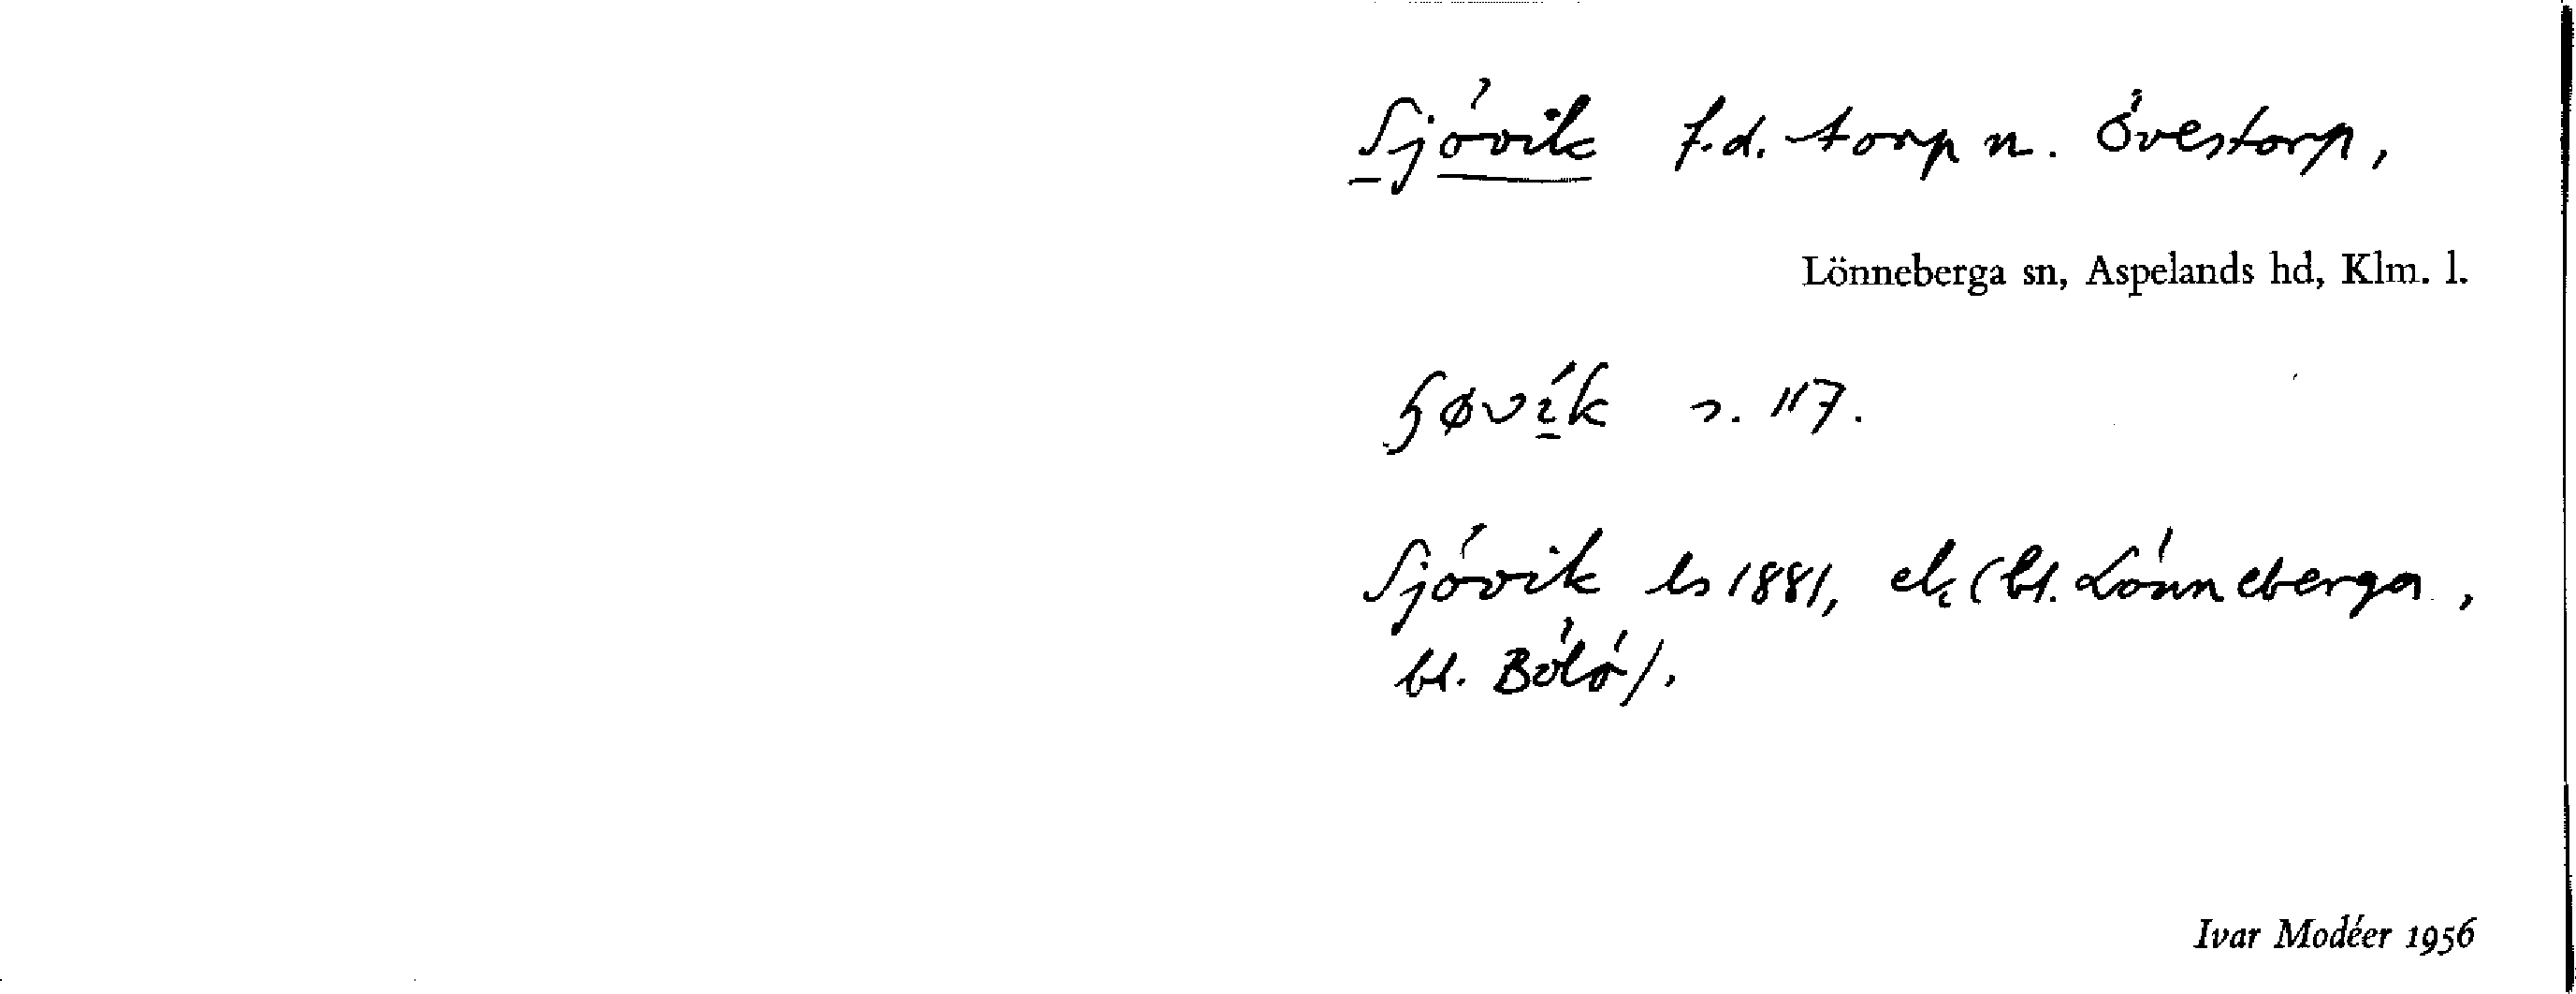 Sjövik f.d. torp n. Övestorp,
Lönneberga sn, Aspelands hd, Klm. l.
ɧøvik s. 117.
Sjövik ls 1881, ek (bl. Lönneberga,
bl. Bölö).
Ivar Modéer 1956